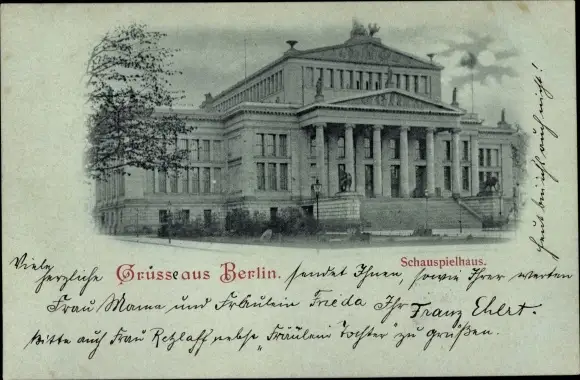 Schauspielhaus.
Viele
herzliche Grüsse aus Berlin. sendet Ihnen, sowie Ihrer werten
Frau Mama und Fräulein Frieda Ihr Franz Ehlert.
Bitte auch Frau Retzlaff nebst "Fräulein Tochter" zu grüßen.
heut bin ich auch nicht!